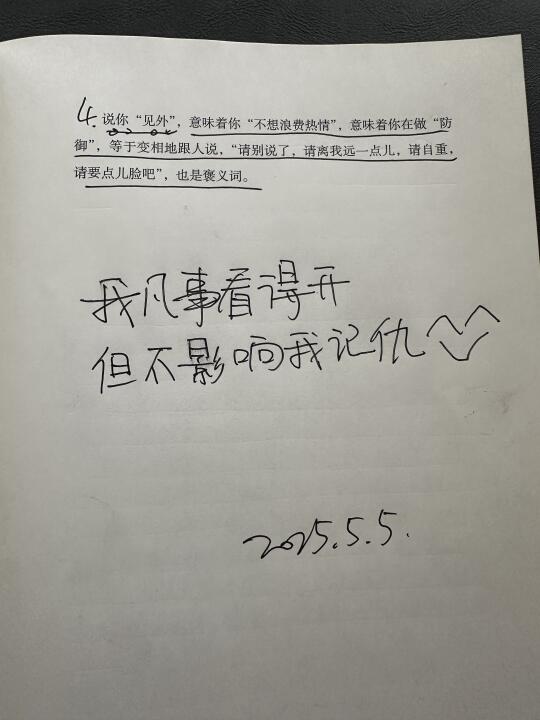 4. 说你“见外”，意味着你“不想浪费热情”，意味着你在做“防
御”，等于变相地跟人说，“请别说了，请离我远一点儿，请自重，
请要点儿脸吧”，也是褒义词。
我凡事看得开
但不影响我记仇
2025.5.5.